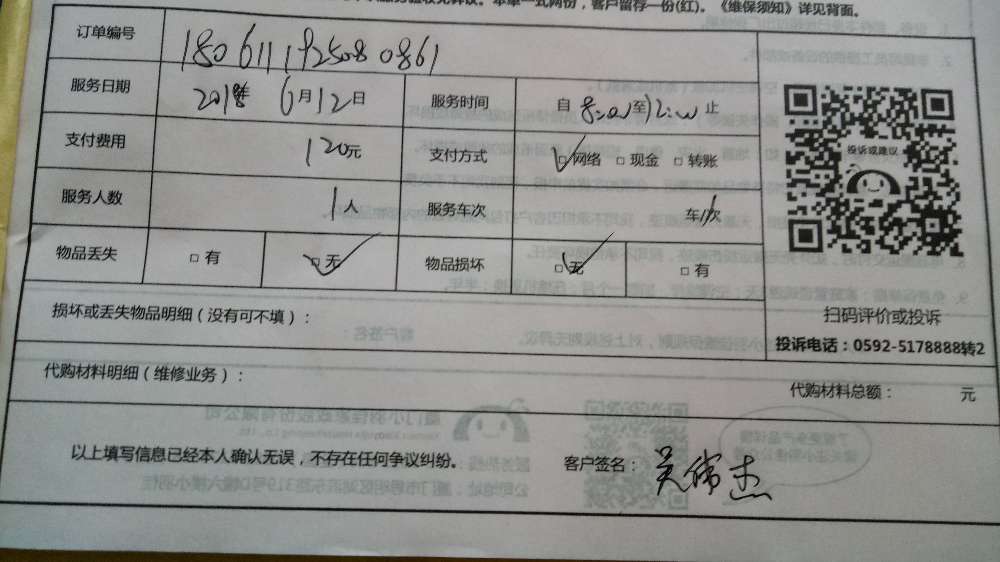 本单一式两份，客户留存一份(红)。《维保须知》详见背面。
订单编号 180611192508 0861
服务日期 2018年 6月12日 服务时间 自 8:00至12:00止
支付费用 120元 支付方式 网络 □现金 □转账
服务人数 1人 服务车次 车/次
物品丢失 □有 □无 物品损坏 □无 □有
损坏或丢失物品明细（没有可不填）：
投诉或建议
扫码评价或投诉
投诉电话：0592-5178888转2
代购材料明细（维修业务）：
代购材料总额： 元
以上填写信息已经本人确认无误，不存在任何争议纠纷。 客户签名：吴伟杰